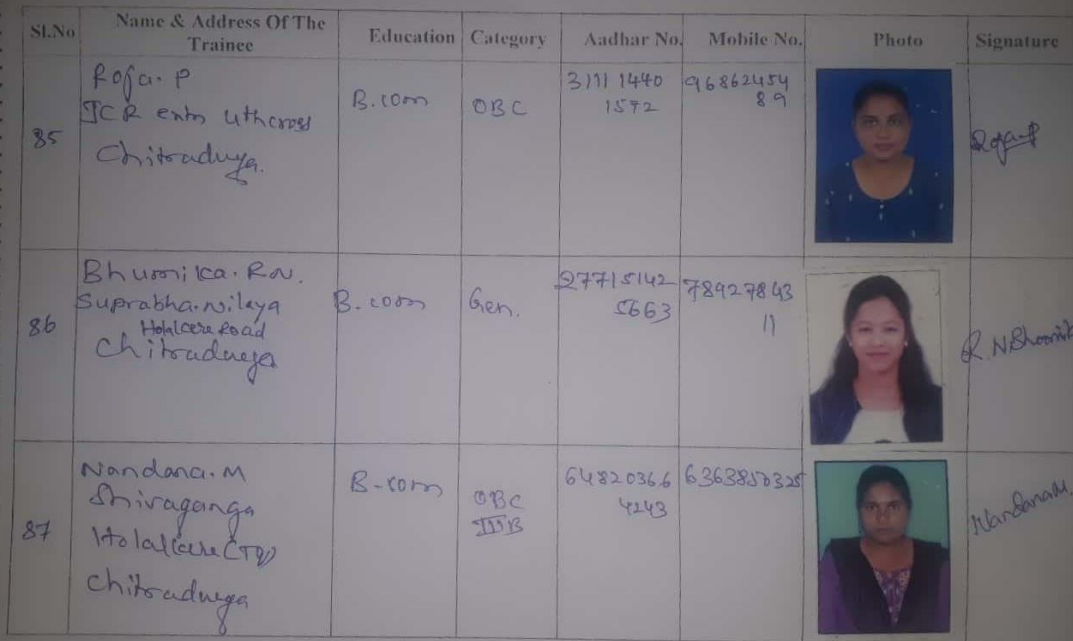 Sl.No Name & Address Of The Trainee Education Category Aadhar No. Mobile No. Photo Signature
85
Roja. P
JCR extn 4th cross
Chitradurga.
B.com
OBC
3111 1440
1572
96862454
89
Roja P
86
Bhumika. R.N.
Suprabha. Nilaya
Holalkere Road
Chitradurga
B.com
Gen.
27715142
5663
78927843
11
R. N Bhoomik
87
Nandana. M
Shivaganga
Holalkere (TQ)
Chitradurga
B-com
OBC
IIIB
64820366
4243
6363850325
Nandana M.